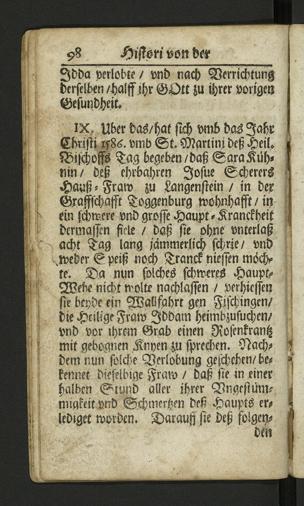 98 Histori von der
Idda verlobte / vnd nach Verrichtung
derselben / halff ihr GOtt zu ihrer vorigen
Gesundheit.
IX. Uber das / hat sich vmb das Jahr
Christi 1586. vmb St. Martini deß Heil.
Bischoffs Tag begeben / daß Sara Küh-
nin / deß ehrbahren Josue Scherers
Hauß-Fraw zu Langenstein / in der
Graffschafft Toggenburg wohnhafft / in
ein schwere vnd grosse Haupt-Kranckheit
dermassen fiele / daß sie ohne vnterlaß
acht Tag lang jämmerlich schrie / vnd
weder Speiß noch Tranck niessen möch-
te. Da nun solches schweres Haupt-
Wehe nicht wolte nachlassen / verhiessen
sie beyde ein Wallfahrt gen Fischingen /
die Heilige Fraw Iddam heimbzusuchen /
vnd vor ihrem Grab einen Rosenkrantz
mit gebognen Knyen zu sprechen. Nach-
dem nun solche Verlobung geschehen / be-
kennet dieselbige Fraw / daß sie in einer
halben Stund aller ihrer Vngestüm-
migkeit vnd Schmertzen deß Haupts er-
lediget worden. Darauff sie deß folgen-
den